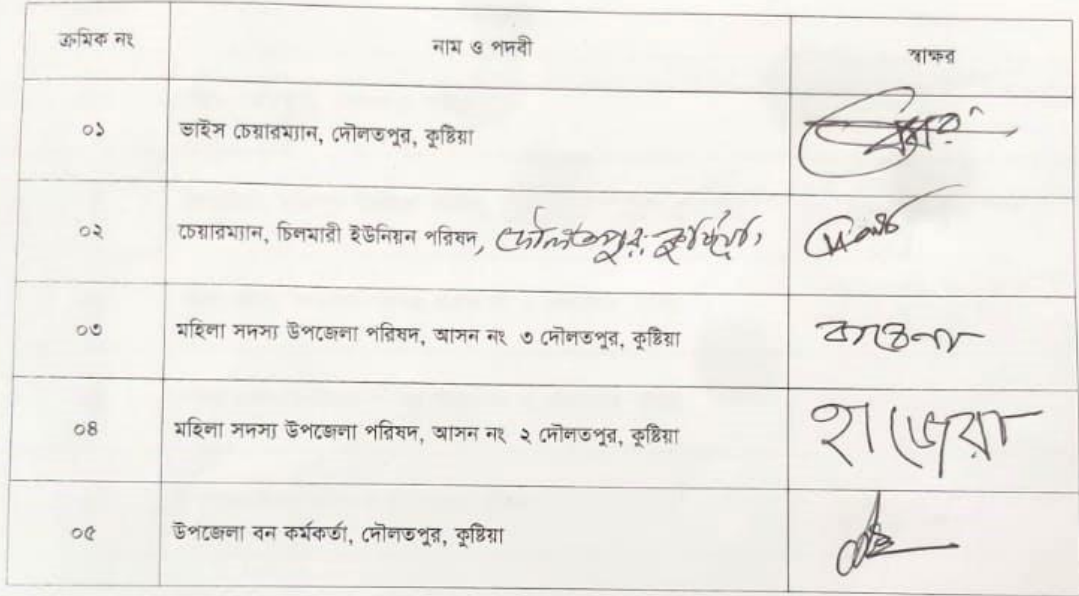 ক্রমিক নং নাম ও পদবী স্বাক্ষর
০১ ভাইস চেয়ারম্যান, দৌলতপুর, কুষ্টিয়া
০২ চেয়ারম্যান, চিলমারী ইউনিয়ন পরিষদ, দৌলতপুর, কুষ্টিয়া,
০৩ মহিলা সদস্য উপজেলা পরিষদ, আসন নং ৩ দৌলতপুর, কুষ্টিয়া
০৪ মহিলা সদস্য উপজেলা পরিষদ, আসন নং ২ দৌলতপুর, কুষ্টিয়া হাজেরা
০৫ উপজেলা বন কর্মকর্তা, দৌলতপুর, কুষ্টিয়া